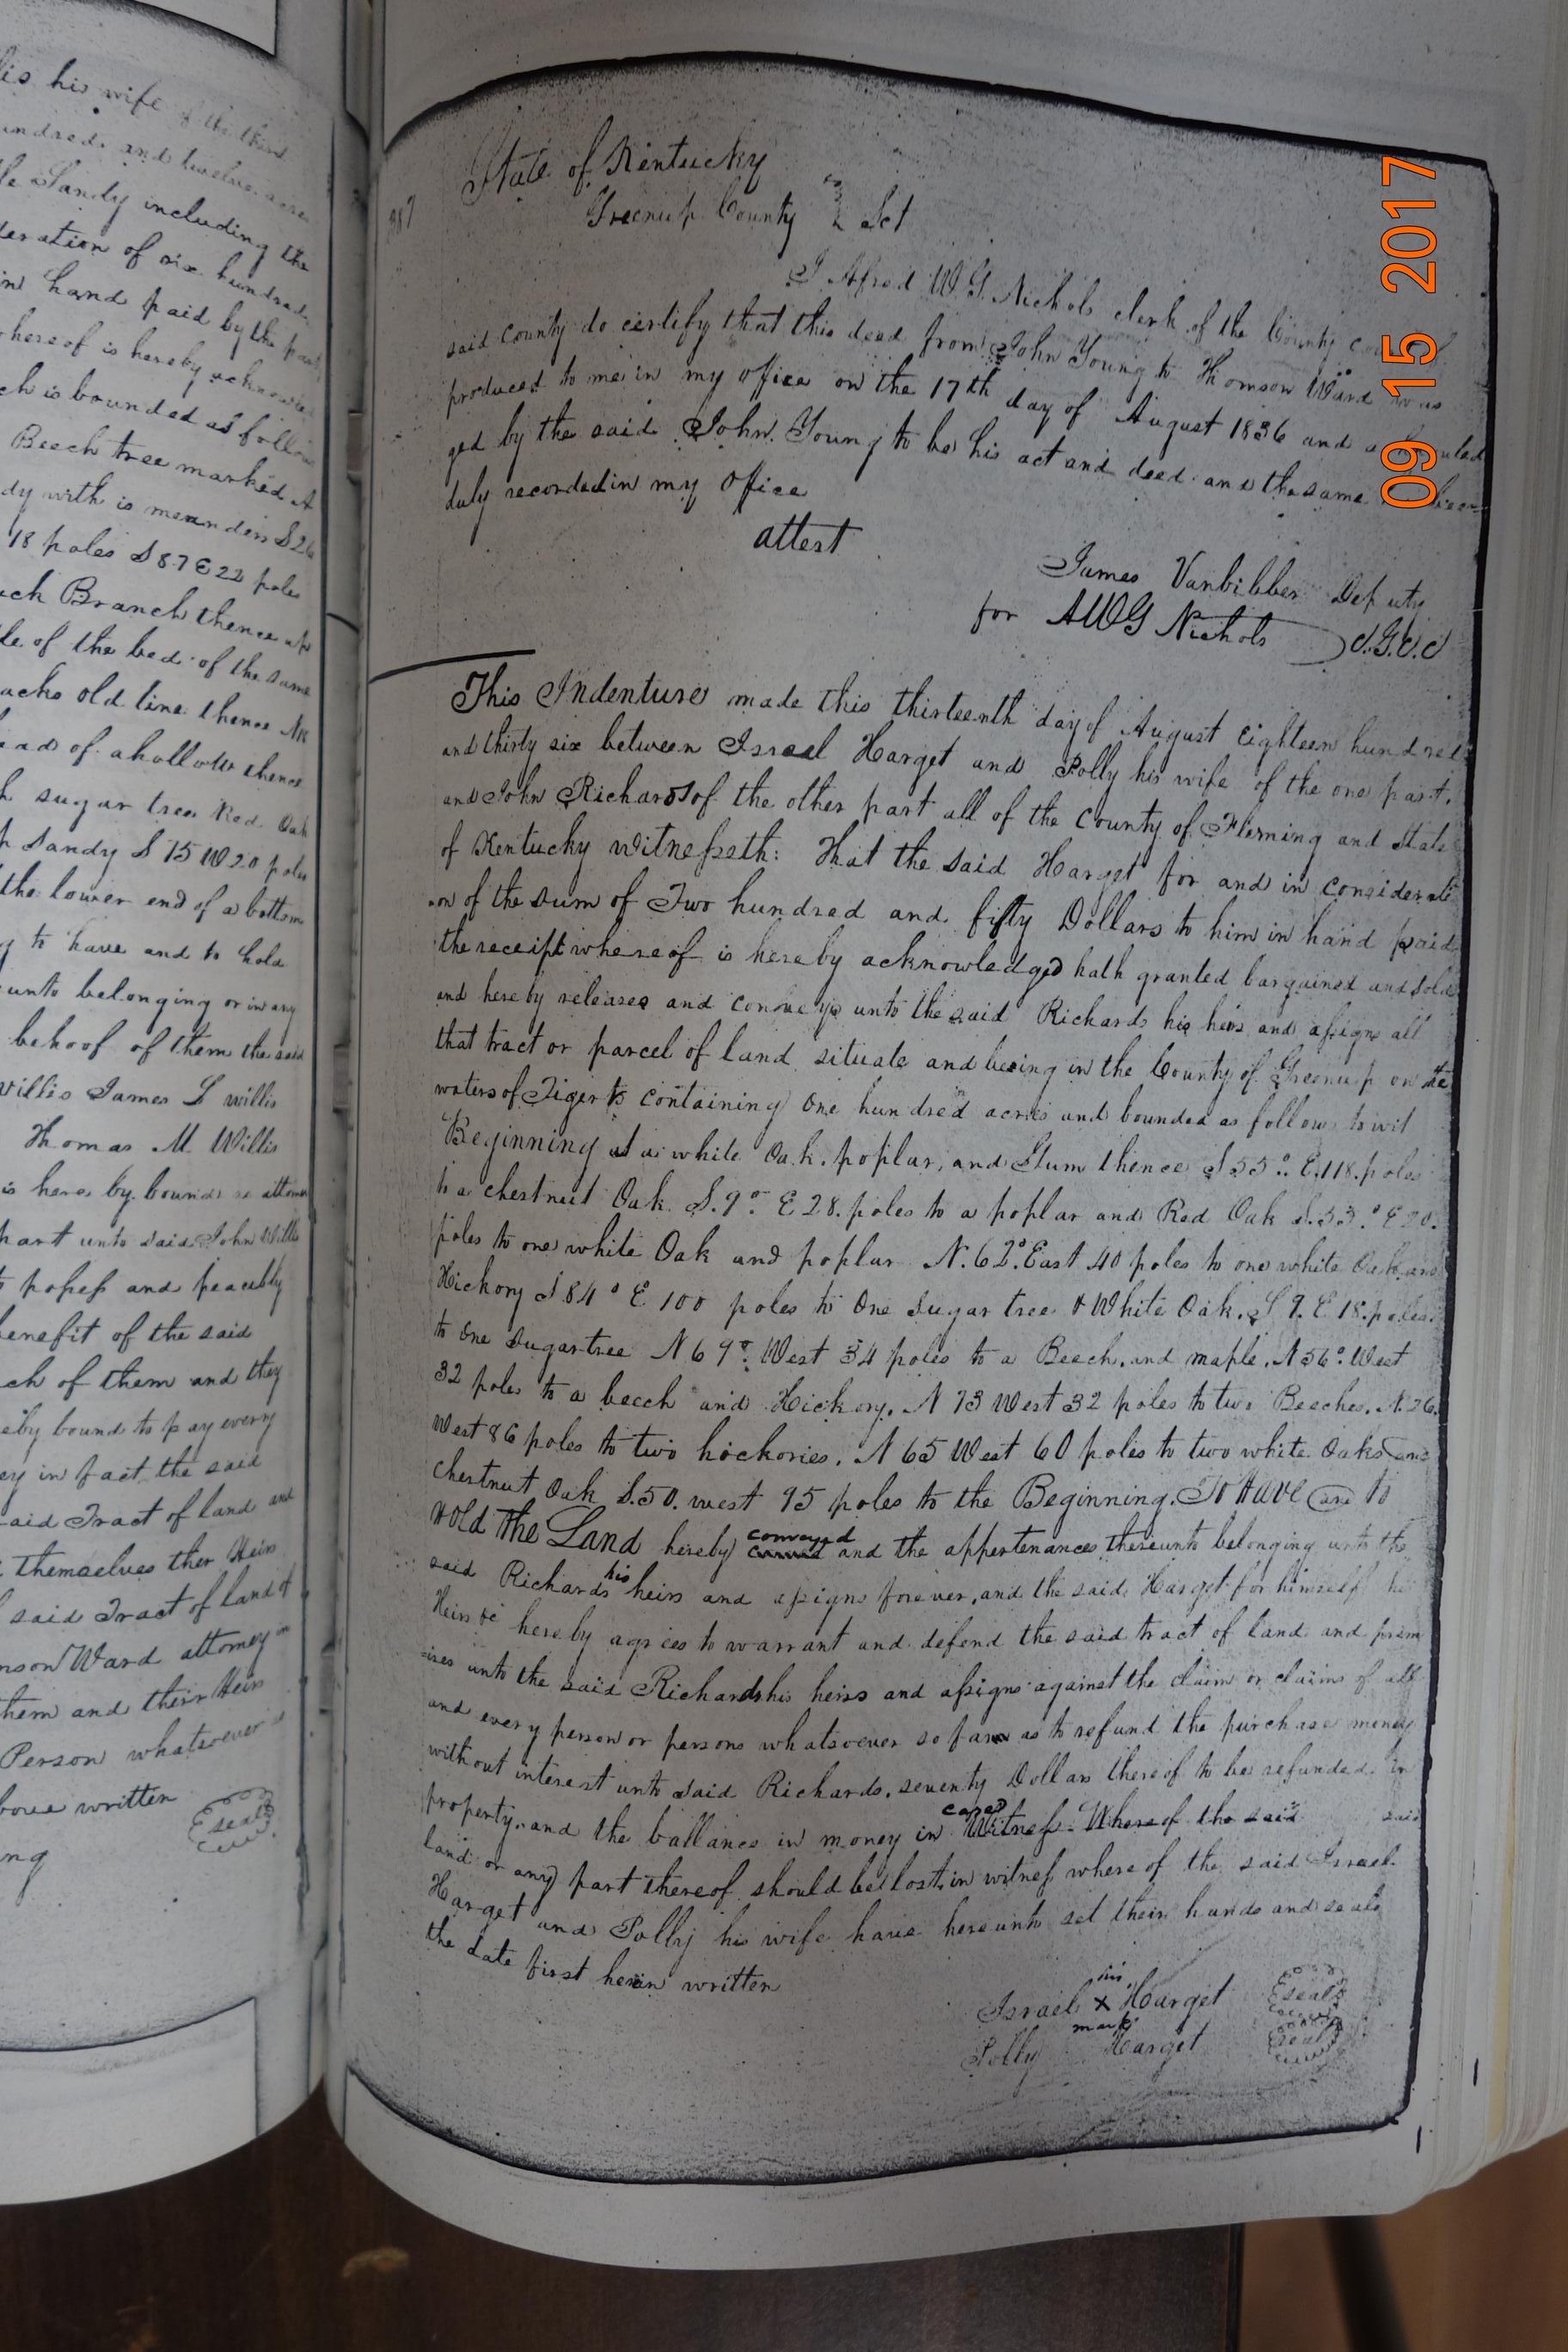 is his wife of the third
undred and twelve acres
le Sandy including the
eration of six hundred
in hand paid by the
hereof is hereby
ch is bounded as follow
Beech tree marked A
dy with is meanders S 26
18 poles S 87 E 22 poles
ch Branch thence up
le of the bed of the same
acks old line thence
ead of a hollow thence
h sugar tree Red Oak
p Sandy S 75 W 20 poles
the lower end of a bottom
g to have and to hold
unto belonging or in any
behoof of them the said
Willis James L willis
Thomas M. Willis
is here by bound attorn
part unto said John Willis
posess and peacably
benefit of the said
ch of them and they
eby bound to pay every
ey in fact the said
aid Tract of land and
themselves ther Heirs
said Tract of land &
mson Ward attorney in
them and their Heirs
Person whatsoever
bove written
Seal
ng
State of Kentucky
387
Greenup County Sct
I Afred W G. Nichols clerk of the County
said county do certify that this deed from John Young to Thomson Ward was
produced to me in my office on the 17th day of August 1836 and
ged by the said John Young to be his act and deed and the same been
duly recorded in my Office
attest
James Vanbibber Deputy
for AWG Nichols C.G.C.C
This Indenture made this thirteenth day of August Eighteen hundred
and thirty six between Israel Harget and Polly his wife of the one part.
and John Richards of the other part all of the County of Fleming and State
of Kentucky witnesseth: That the said Harget for and in considerati
-on of the sum of Two hundred and fifty Dollars to him in hand paid
the receipt whereof is hereby acknowledged hath granted barguined and sold
and hereby releases and conveys unto the said Richards his heirs and assigns all
that tract or parcel of land situate and being in the County of Greenup on the
waters of Tigerts containing One hundred acres and bounded as follows towit
Beginning at a white Oak. poplar, and Gum thence S 55° E. 118. poles
to a chestnut Oak S. 9° E 28. poles to a poplar and Red Oak S. 33.° E 20.
poles to one white Oak and poplar N. 62° East 40 poles to one white Oak and
Hickory S 84° E 100 poles to One Sugar tree & White Oak. S 9. E 18. poles
to One Sugartree N 69° West 34 poles to a Beech. and maple. N 56° West
32 poles to a beech and Hickory. N 73 West 32 poles to two Beeches. N. 26.
West 86 poles to two hickories. N 65 West 60 poles to two white Oaks and
chestnut Oak S. 50. west 95 poles to the Beginning. To Have and to
Hold The Land hereby conveyed and the appertenances thereunto belonging unto the
said Richards his heirs and assigns forever, and the said Harget for himself his
Heirs &c hereby agrees to warrant and defend the said tract of land and prem
-ises unto the said Richards his heirs and assigns against the claim or claims of all
and every person or persons whatsoever so far as to refund the purchase money
without interest unto said Richards. seventy Dollars thereof to be refunded in
property. and the ballance in money in case Witness Whereof the said said
land or any part thereof should be lost, in witness where of the said Israel
Harget and Polly his wife have hereunto set their hands and seals
the date first herein written
Israel his X mark Harget Seal
Polly Harget Seal
09 15 2017